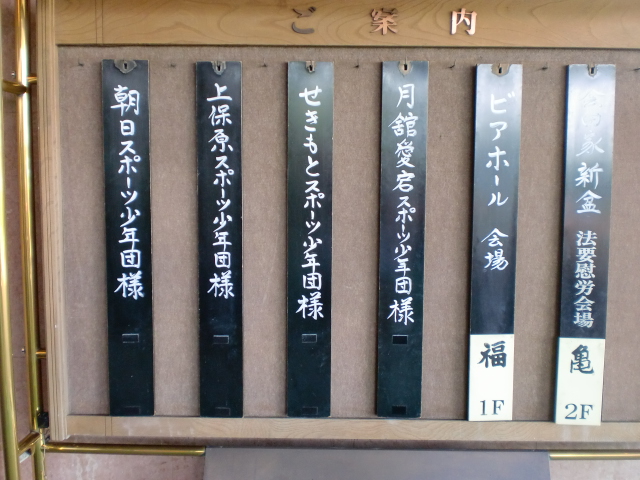 ご案内
朝日スポーツ少年団様
上保原スポーツ少年団様
せきもとスポーツ少年団様
月舘愛宕スポーツ少年団様
ビアホール 会場
福
1F
家新盆 法要慰労会場
亀
2F